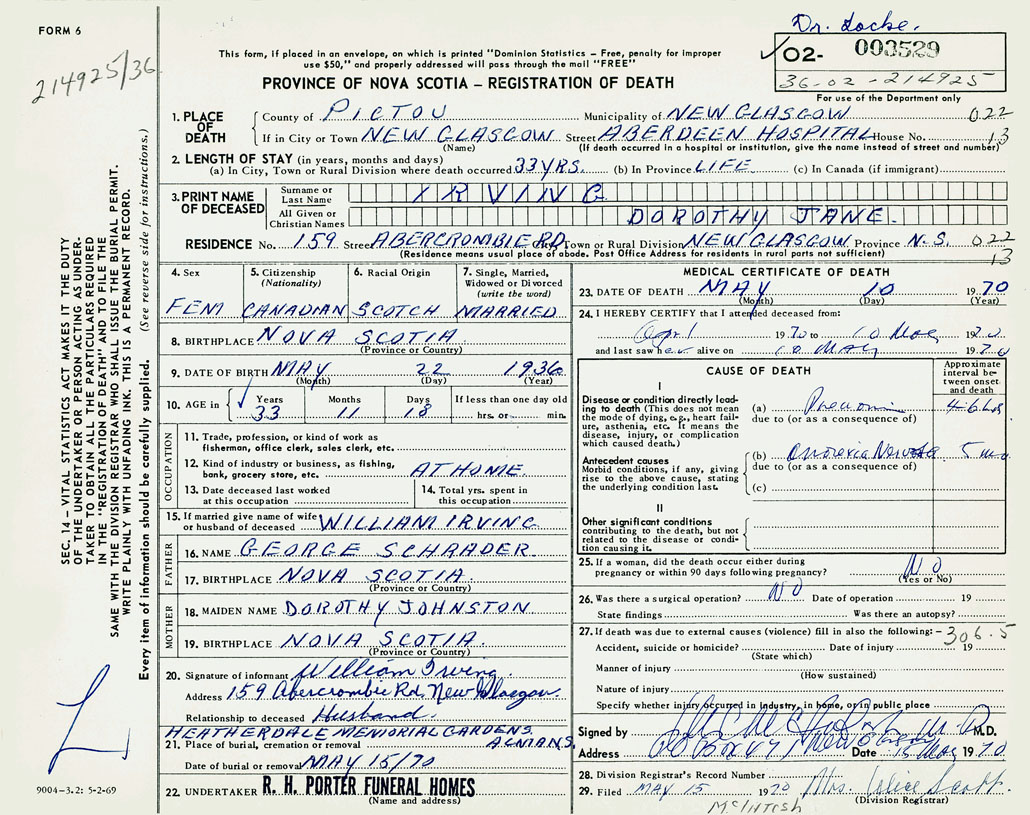 FORM 6
214925/36
Dr. Locke.
✓02- 003529
36-02-214925
For use of the Department only
This form, if placed in an envelope, on which is printed "Dominion Statistics – Free, penalty for improper
use $50," and properly addressed will pass through the mail "FREE"
PROVINCE OF NOVA SCOTIA – REGISTRATION OF DEATH
1. PLACE OF DEATH
County of PICTOU Municipality of NEW GLASGOW 022
If in City or Town NEW GLASGOW Street ABERDEEN HOSPITAL House No. 13
(Name) (If death occurred in a hospital or institution, give the name instead of street and number)
2. LENGTH OF STAY (in years, months and days)
(a) In City, Town or Rural Division where death occurred 33 YRS. (b) In Province LIFE (c) In Canada (if immigrant)
3. PRINT NAME OF DECEASED
Surname or Last Name IRVING
All Given or Christian Names DOROTHY JANE.
RESIDENCE No. 159 Street ABERCROMBIE RD, City, Town or Rural Division NEW GLASGOW Province N.S. 022
(Residence means usual place of abode. Post Office Address for residents in rural parts not sufficient) 13
4. Sex
FEM
5. Citizenship (Nationality)
CANADIAN
6. Racial Origin
SCOTCH
7. Single, Married, Widowed or Divorced (write the word)
MARRIED
8. BIRTHPLACE NOVA SCOTIA
(Province or Country)
9. DATE OF BIRTH MAY 22 1936
(Month) (Day) (Year)
10. AGE in Years Months Days If less than one day old
33 11 18 hrs. or min.
OCCUPATION
11. Trade, profession, or kind of work as
fisherman, office clerk, sales clerk, etc.
12. Kind of industry or business, as fishing,
bank, grocery store, etc. AT HOME
13. Date deceased last worked
at this occupation
14. Total yrs. spent in
this occupation
15. If married give name of wife
or husband of deceased WILLIAM IRVING
FATHER
16. NAME GEORGE SCHRADER.
17. BIRTHPLACE NOVA SCOTIA.
(Province or Country)
MOTHER
18. MAIDEN NAME DOROTHY JOHNSTON
19. BIRTHPLACE NOVA SCOTIA.
(Province or Country)
20. Signature of informant William Irving.
Address 159 Abercrombie Rd, New Glasgow.
Relationship to deceased Husband.
HEATHERDALE MEMORIAL GARDENS.
21. Place of burial, cremation or removal
Date of burial or removal MAY 15/70
22. UNDERTAKER R. H. PORTER FUNERAL HOMES
(Name and address)
MEDICAL CERTIFICATE OF DEATH
23. DATE OF DEATH MAY 10 1970
(Month) (Day) (Year)
24. I HEREBY CERTIFY that I attended deceased from:
April 1970 to 10 May 1970
and last saw her alive on 10 May 1970
CAUSE OF DEATH
Approximate interval between onset and death
I
Disease or condition directly leading to death (This does not mean the mode of dying, e.g., heart failure, asthenia, etc. It means the disease, injury, or complication which caused death.)
(a) Pneumonia
due to (or as a consequence of)
Antecedent causes
Morbid conditions, if any, giving rise to the above cause, stating the underlying condition last.
(b) Anorexia Nervosa 5 mo
due to (or as a consequence of)
(c)
II
Other significant conditions
contributing to the death, but not related to the disease or condition causing it.
25. If a woman, did the death occur either during
pregnancy or within 90 days following pregnancy? NO
(Yes or No)
26. Was there a surgical operation? NO Date of operation 19
State findings Was there an autopsy?
27. If death was due to external causes (violence) fill in also the following: – 306.5
Accident, suicide or homicide? Date of injury 19
(State which)
Manner of injury
(How sustained)
Nature of injury
Specify whether injury occurred in industry, in home, or in public place
Signed by M.D.
Address PO Box 471 New Glasgow Date 15 May 1970
28. Division Registrar's Record Number
29. Filed MAY 15 1970 Mrs. Alice Scott.
(Division Registrar)
McINTOSH
SEC. 14 – VITAL STATISTICS ACT MAKES IT THE DUTY
OF THE UNDERTAKER OR PERSON ACTING AS UNDER-
TAKER TO OBTAIN ALL THE PARTICULARS REQUIRED
IN THE "REGISTRATION OF DEATH" AND TO FILE THE
SAME WITH THE DIVISION REGISTRAR WHO SHALL ISSUE THE BURIAL PERMIT.
WRITE PLAINLY WITH UNFADING INK. THIS IS A PERMANENT RECORD.
Every item of information should be carefully supplied. (See reverse side for instructions.)
9004-3.2: 5-2-69